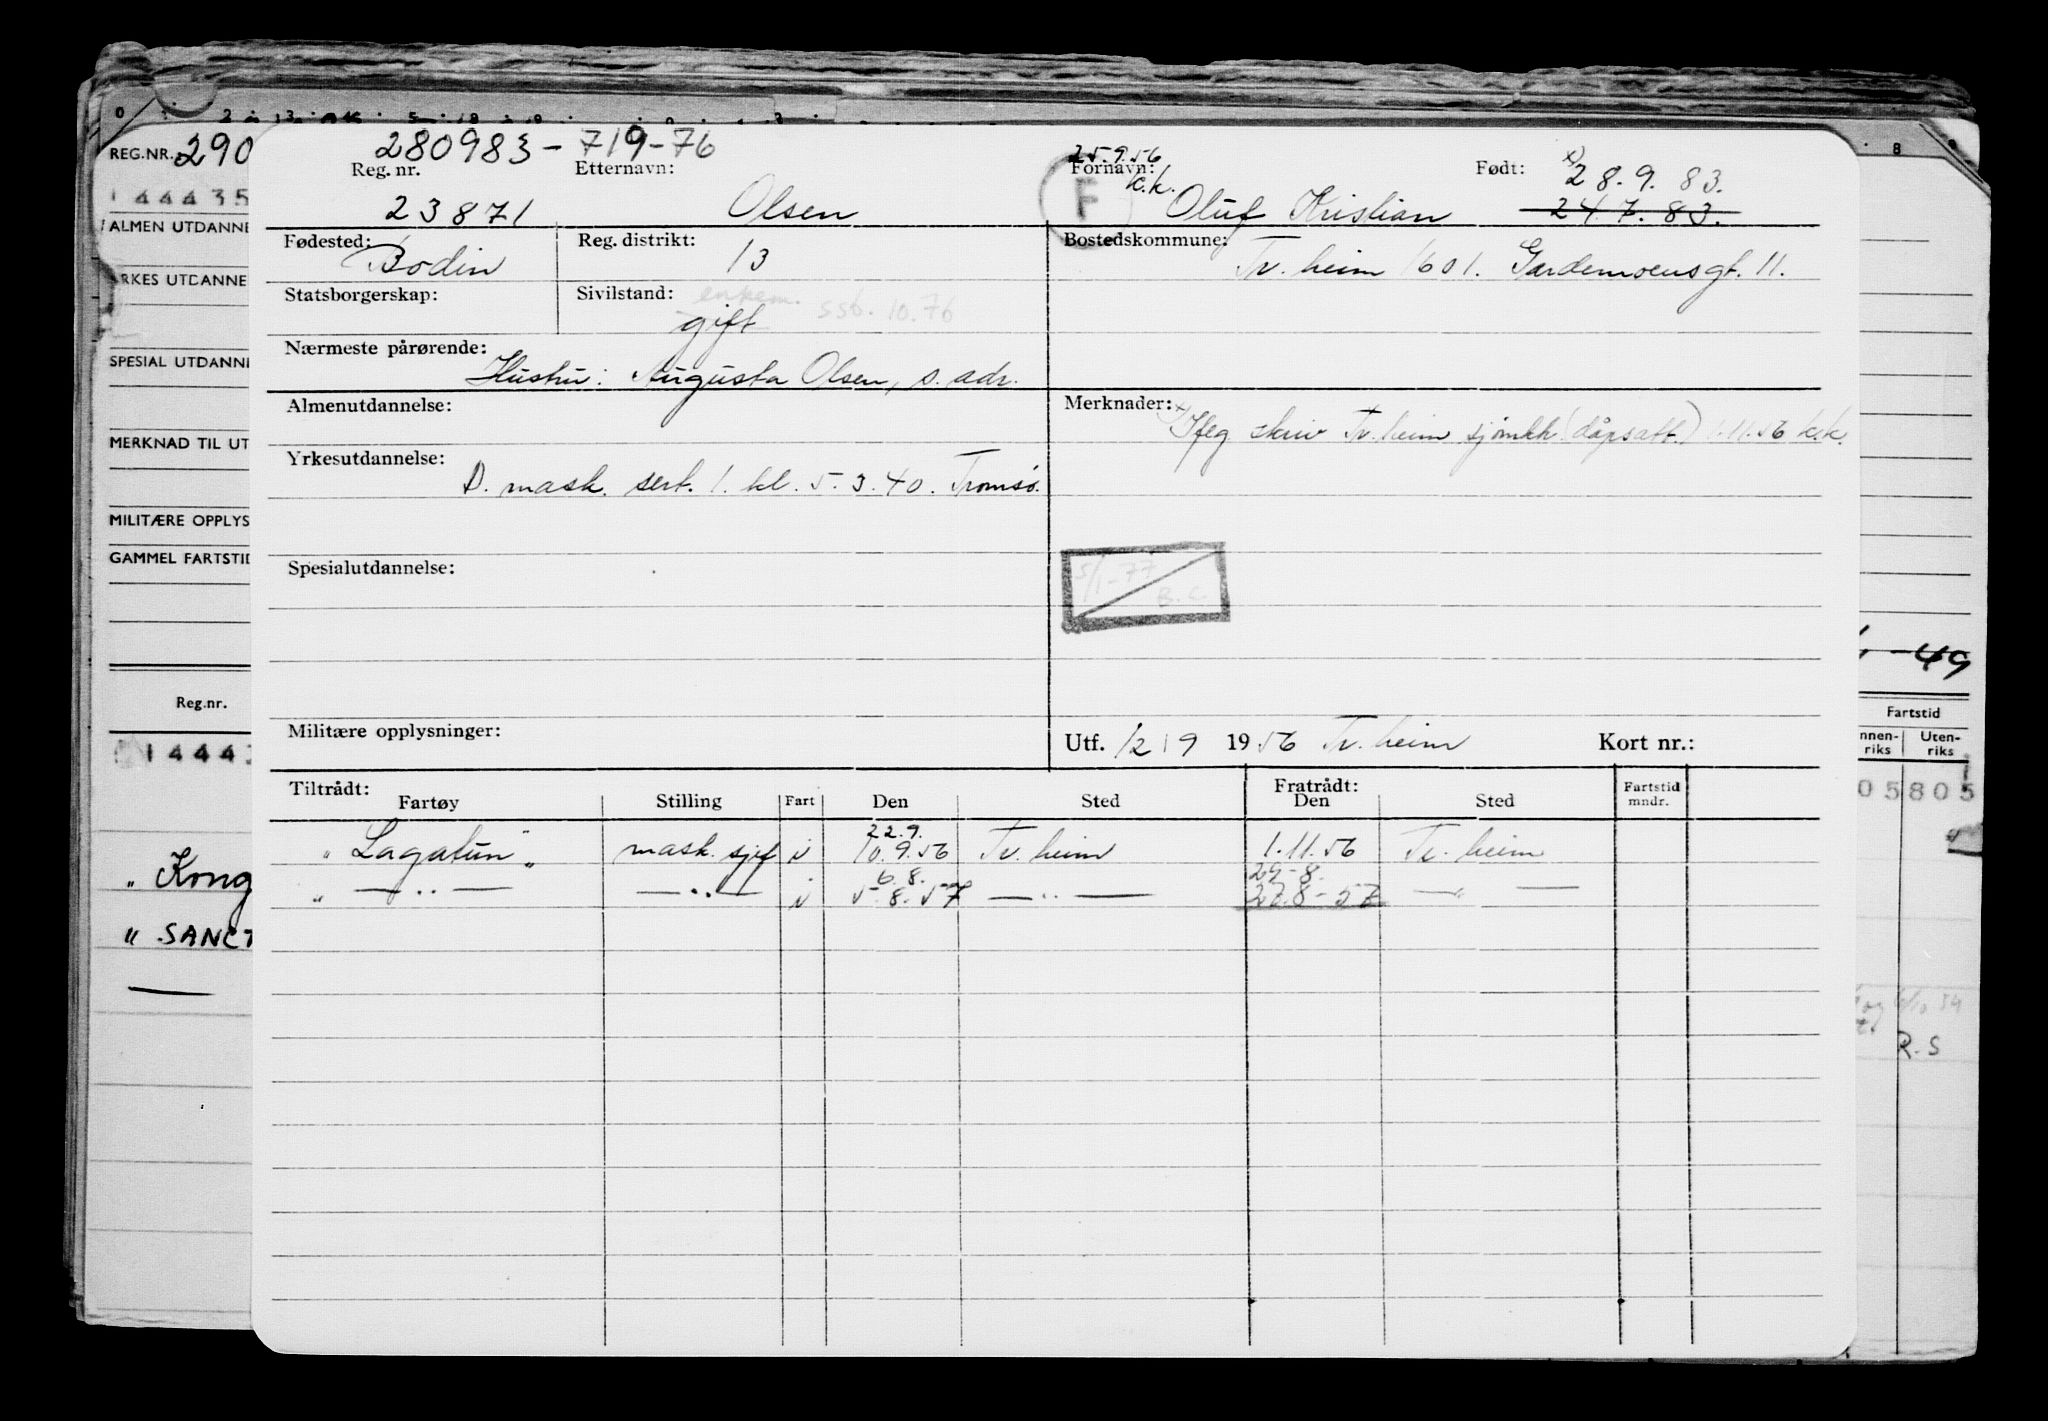 REG.NR. 290
280983-719-76
25.9.56
k.k.
Reg. nr. Etternavn: Fornavn: Født: x) 28.9.83.
23871 Olsen F Oluf Kristian 24.7.83.
144435
ALMEN UTDANNE
Fødested: Bodin
Reg. distrikt: 13
Bostedskommune: Tr.heim 1601. Gardemoensgt. 11.
YRKES UTDANNE
Statsborgerskap:
Sivilstand: enkem. ssb. 10.76
gift
Nærmeste pårørende:
Hustru: Augusta Olsen, s. adr.
SPESIAL UTDANNE
Almenutdannelse:
Merknader: x) Ifeg skriv Tr.heim sjømkk (dåpsatt.) 1.11.56 k.k.
MERKNAD TIL UT
Yrkesutdannelse:
D. mask. sert. 1. kl. 5.3.40. Tromsø.
MILITÆRE OPPLYS
GAMMEL FARTSTID
Spesialutdannelse:
5/1-77
B.C.
-49
Reg.nr.
Fartstid
Innen-riks Uten-riks
Militære opplysninger:
Utf. 12/9 1956 Tr.heim Kort nr.:
1444
05805
Tiltrådt: Fratrådt:
Fartøy Stilling Fart Den Sted Den Sted Fartstid mndr.
22.9.
"Lagatun" mask.sjef i 10.9.56 Tr.heim 1.11.56 Tr.heim
6.8. 29-8.
" — .. — — .. — i 5.8.57 — .. — 27.8-57 — " —
" Kong
" SANCT
R.S